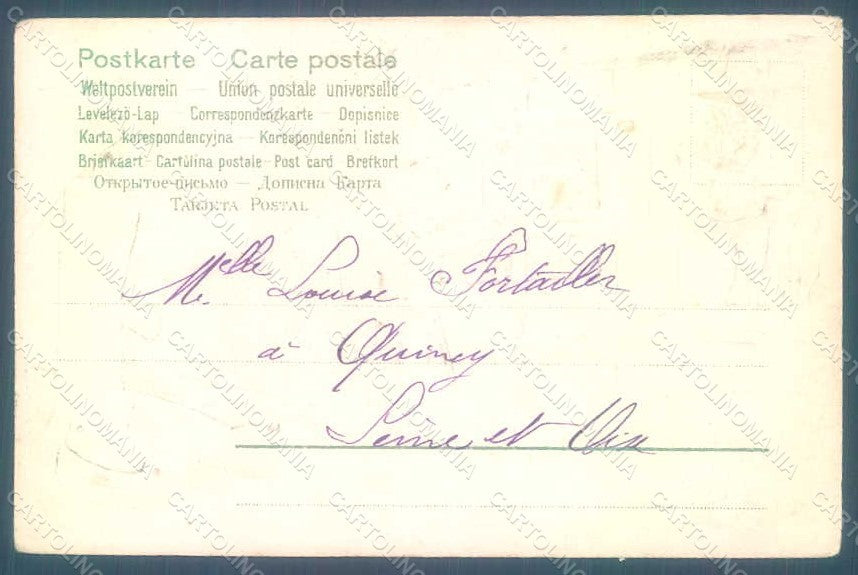 Postkarte – Carte postale
Weltpostverein – Union postale universelle
Levelező-Lap – Correspondenzkarte – Dopisnice
Karta korespondencyjna – Korespondenční listek
Briefkaart – Cartolina postale – Post card – Brefkort
Открытое-письмо – Дописна Карта
Tarjeta Postal
Melle. Louise
à Quincy
Seine et Oise
CARTOLINOMANIA